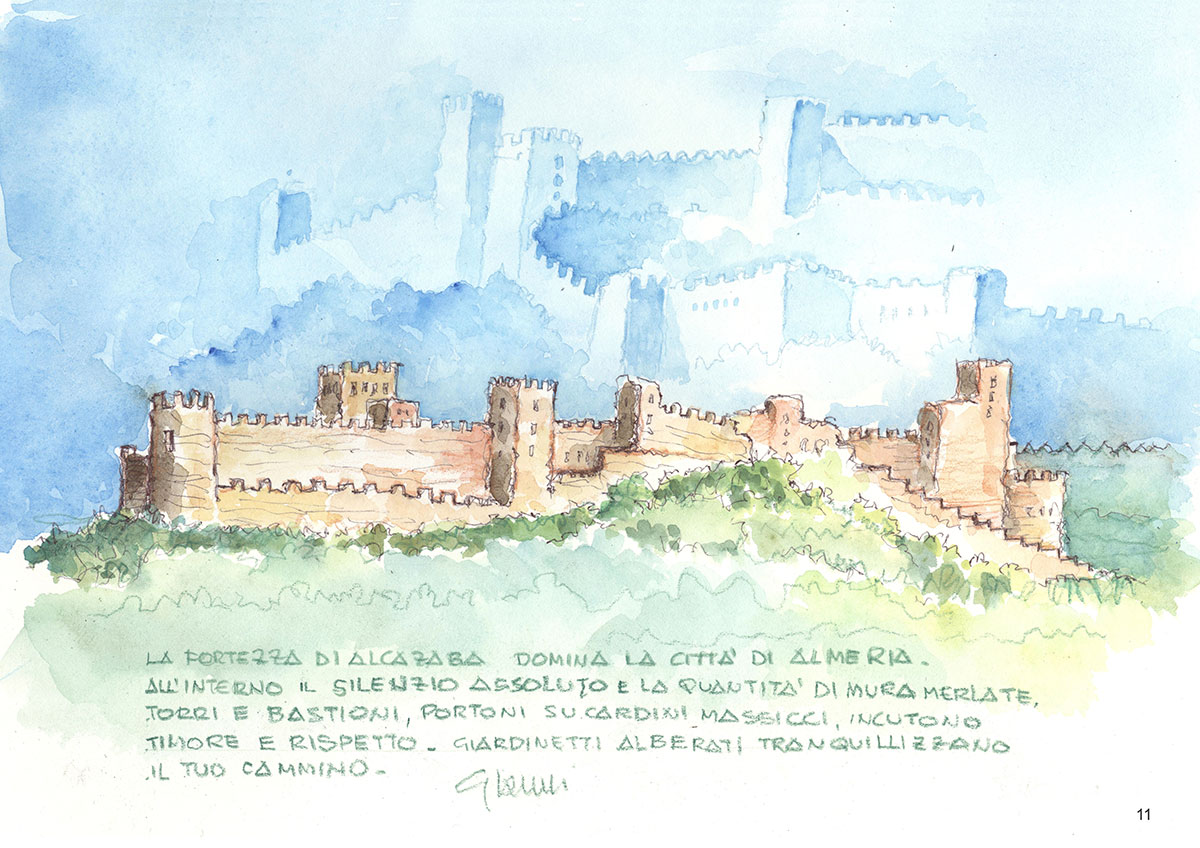 LA FORTEZZA DI ALCAZABA DOMINA LA CITTA' DI ALMERIA.
ALL'INTERNO IL SILENZIO ASSOLUTO E LA QUANTITA' DI MURA MERLATE,
TORRI E BASTIONI, PORTONI SU CARDINI MASSICCI, INCUTONO
TIMORE E RISPETTO. GIARDINETTI ALBERATI TRANQUILLIZZANO
IL TUO CAMMINO.
Gianni
11